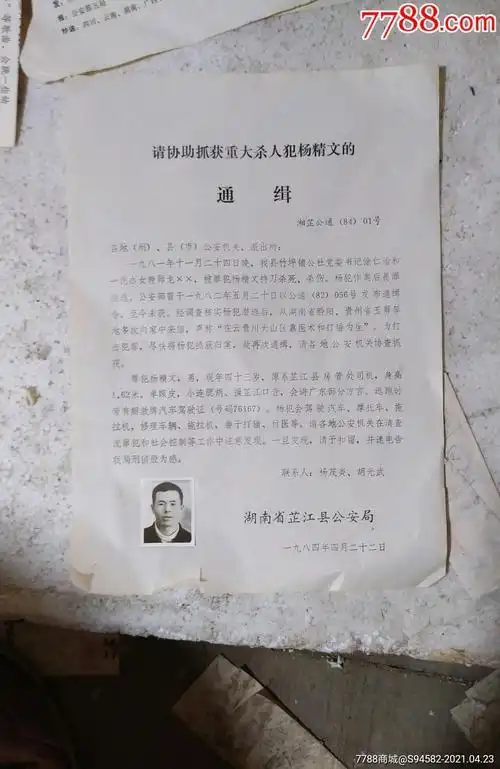 7788.com
请协助抓获重大杀人犯杨精文的
通 缉
湘芷公通（84）01号
各地（州）、县（市）公安机关、派出所：
一九八一年十一月二十四日晚，我县竹坪铺公社党委书记徐仁治和
××，被罪犯杨精文持刀杀死、杀伤。杨犯作案后畏罪
公安部曾于一九八二年五月二十日以公通（82）056号发布通缉
令，至今未获。经调查核实杨犯潜逃后，从湖南省黔阳、贵州省玉屏等
地多次向家中来信，声称“在云贵川大山区靠医术和打猎为生”。为打
击犯罪，尽快将杨犯抓获归案，故再次通缉，请各地公安机关协查抓
获。
罪犯杨精文，男，现年四十三岁，原系芷江县房管处司机，身高
1.62米，单眼皮，小连腮胡，操芷江口音，会讲广东部分方言，逃跑时
带有解放牌汽车驾驶证（号码76167）。杨犯会驾驶汽车、摩托车、拖
拉机，修理车辆、拖拉机，善于打猎、行医等，请各地公安机关在清查
流窜犯和社会控制等工作中注意发现。一旦发现，请予扣留，并速电告
我局刑侦股为感。
联系人：杨茂炎、胡光武
湖南省芷江县公安局
一九八四年四月二十二日
7788商城@S94582-2021.04.23